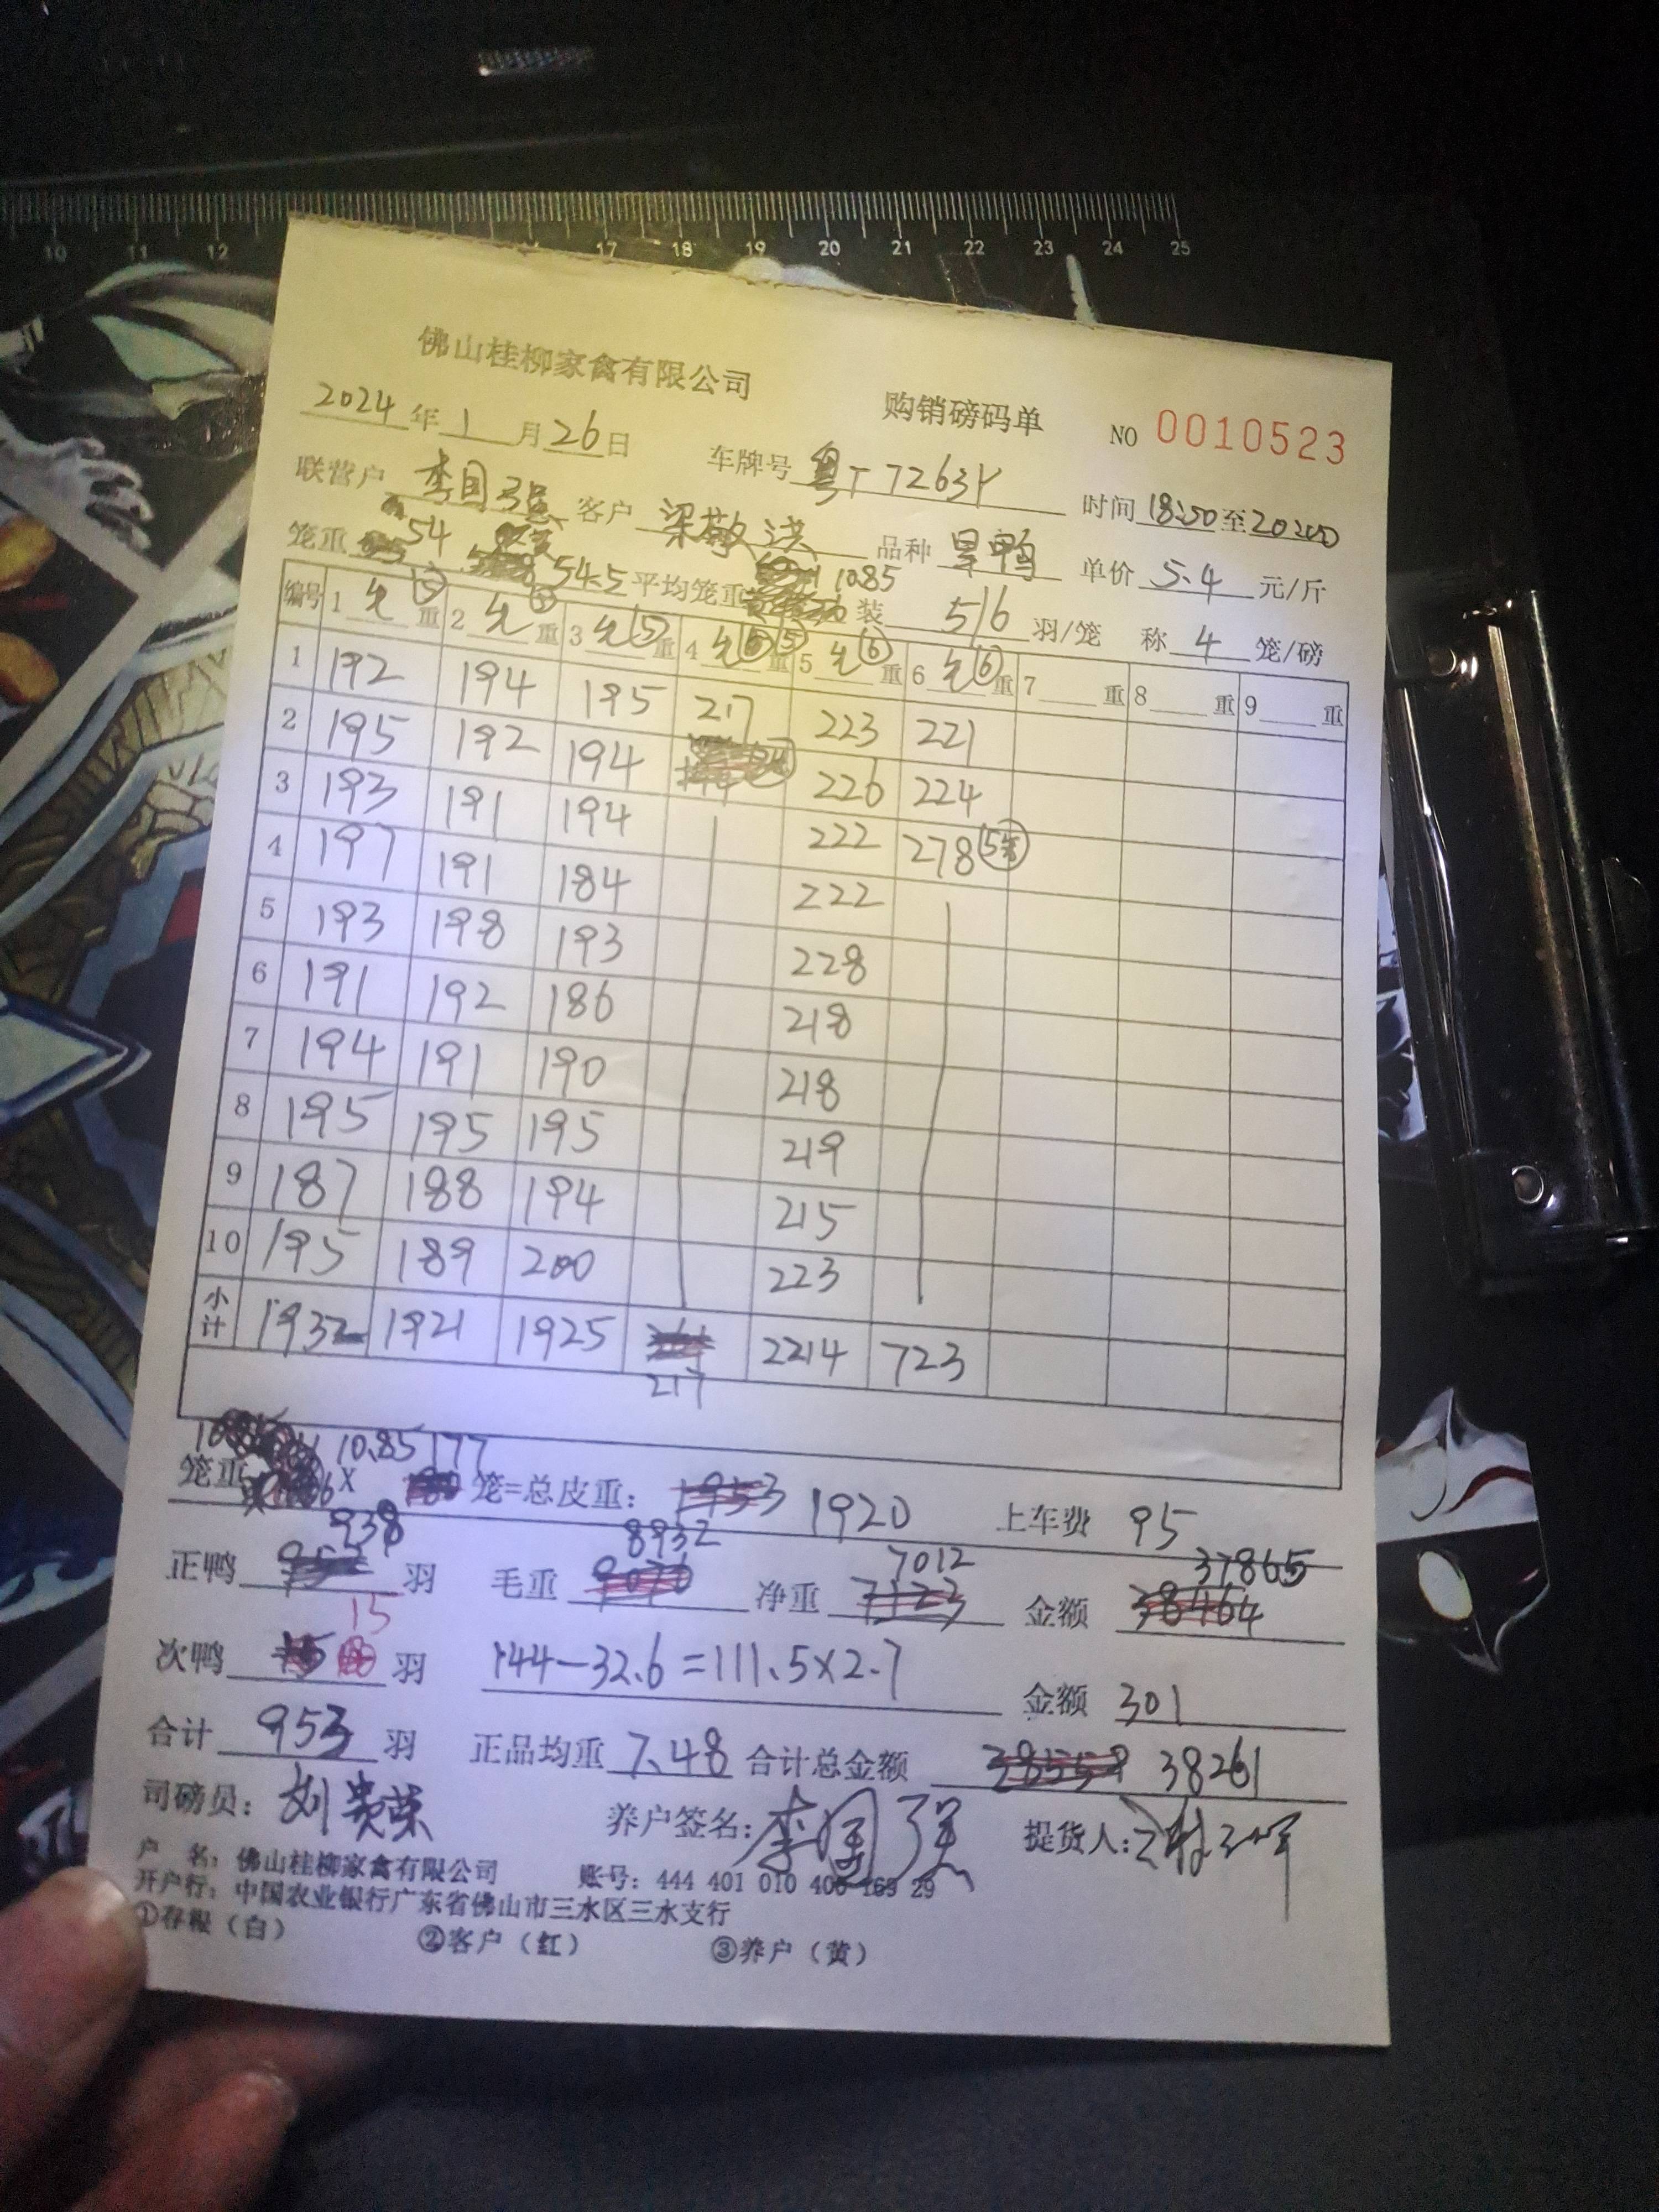 10 11 12 16 17 18 19 20 21 22 23 24 25
佛山桂柳家禽有限公司
购销磅码单 NO 0010523
2024年1月26日 车牌号 粤T7263Y 时间18:50至20:20
联营户 李国强 客户 梁敬洪 品种 旱鸭 单价 5.4 元/斤
笼重 54 54.5 平均笼重 10.85 装 5/6 羽/笼 称 4 笼/磅
编号 1 重 ⑤ 2 重 3 重 ⑤ 4 重 ⑤ 5 重 ⑥ 6 重 ⑥ 7 重 8 重 9 重
1 192 194 195 217 223 221
2 195 192 194 226 224
3 193 191 194 222 278
4 197 191 184 222
5 193 198 193 228
6 191 192 186 218
7 194 191 190 218
8 195 195 195 219
9 187 188 194 215
10 195 189 200 223
小计 1932 1921 1925 217 2214 723
笼重 10.85 X 177 笼=总皮重: 1920 上车费 95
正鸭 938 羽 毛重 8932 净重 7012 金额 37865
次鸭 15 羽 144-32.6=111.5×2.7 金额 301
合计 953 羽 正品均重 7.48 合计总金额 38261
司磅员: 刘贵荣 养户签名: 李国强 提货人:
户 名: 佛山桂柳家禽有限公司 账号: 444 401 010 400 169 29
开户行: 中国农业银行广东省佛山市三水区三水支行
①存根(白) ②客户(红) ③养户(黄)